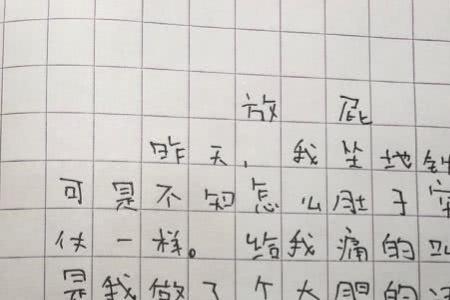 放屁
昨天,我坐地铁
可是不知怎么肚子
一样。给我痛的
是我做了个大胆的